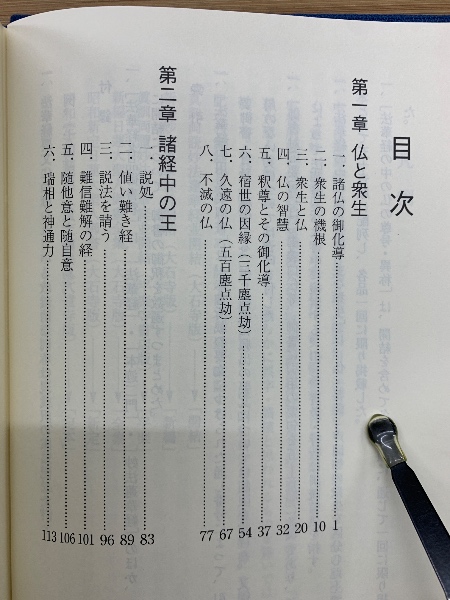 目次
第一章 仏と衆生
一、諸仏の御化導……1
二、衆生の機根……10
三、衆生と仏……20
四、仏の智慧……32
五、釈尊とその御化導……37
六、宿世の因縁（三千塵点劫）……54
七、久遠の仏（五百塵点劫）……67
八、不滅の仏……77
第二章 諸経中の王
一、説処……83
二、値い難き経……89
三、説法を請う……96
四、難信難解の経……101
五、随他意と随自意……106
六、瑞相と神通力……113